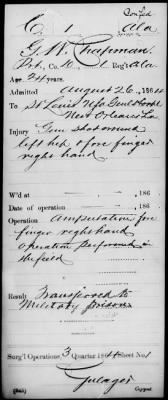 Confed
C 1 Ala
G. W. Chapman.
Pvt., Co. D 1 Reg't Ala
Age 24 years.
Admitted August 26, 1864
St Louis USA Genl Hosp
New Orleans La
Injury Gun shot wound
left hip & fore finger
right hand
W'd at , 186
Date of operation , 186
Operation Amputation fore
finger right hand
operation performed in
the field
Result Transferred to
Military prison
Surg'l Operations, 3 Quarter 1864 Sheet No. 1
Copyist.